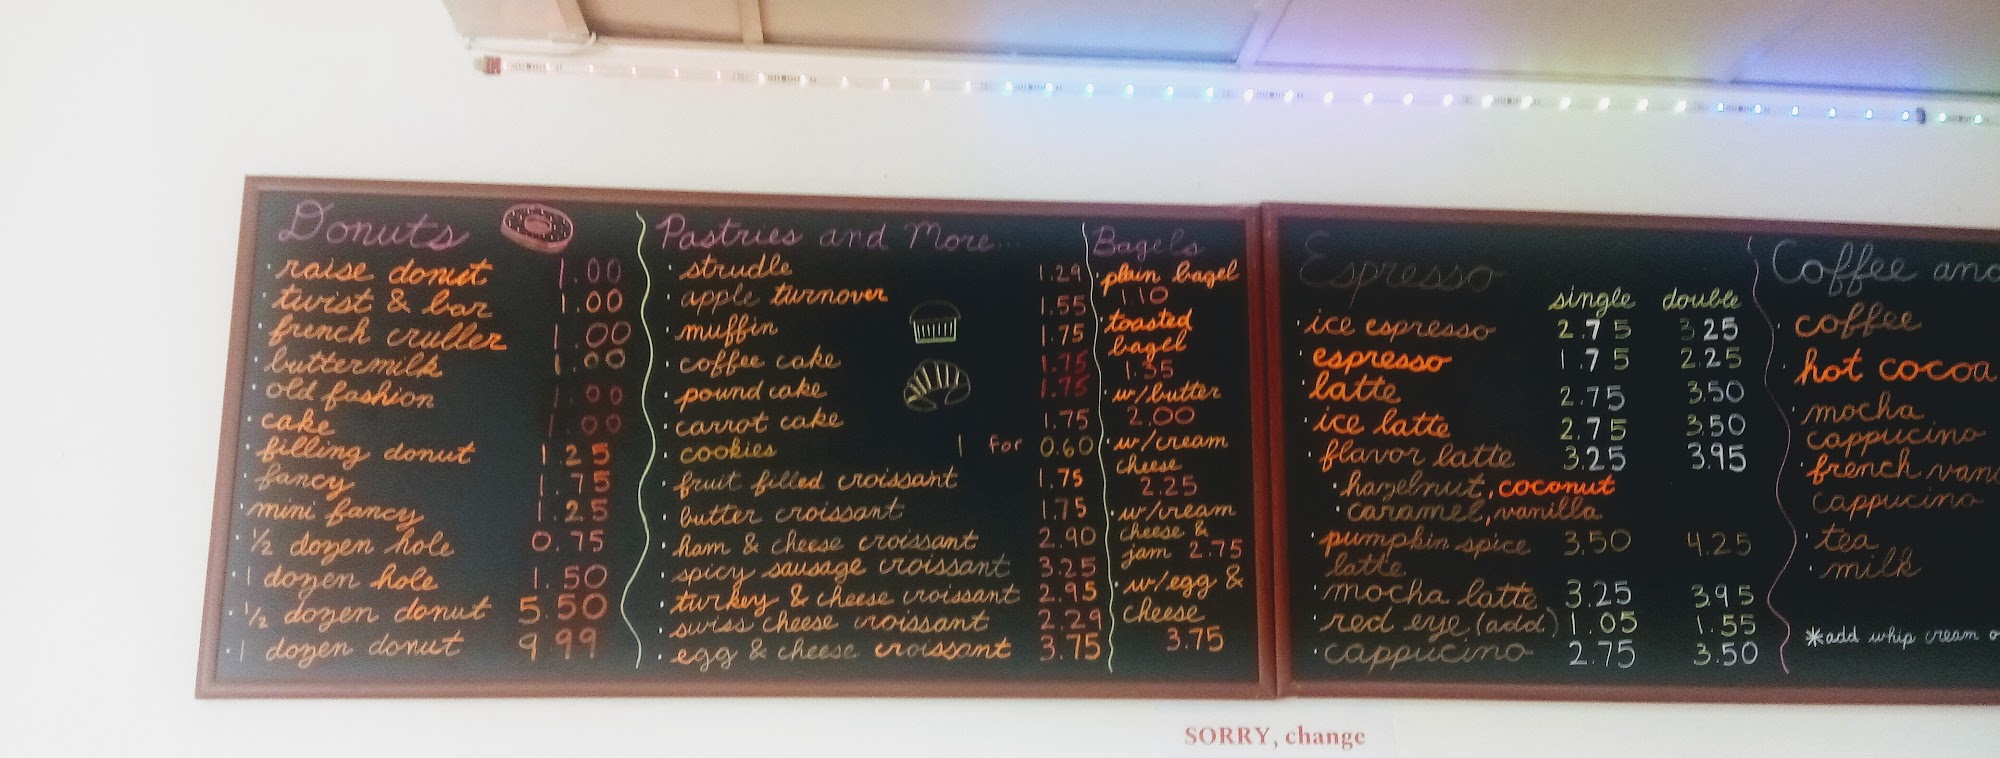 Donuts
· raise donut 1.00
· twist & bar 1.00
· french cruller 1.00
· buttermilk 1.00
· old fashion 1.00
· cake 1.00
· filling donut 1.25
· fancy 1.75
· mini fancy 1.25
· 1/2 dozen hole 0.75
· 1 dozen hole 1.50
· 1/2 dozen donut 5.50
· 1 dozen donut 9.99
Pastries and More...
· strudle 1.29
· apple turnover 1.55
· muffin 1.75
· coffee cake 1.75
· pound cake 1.75
· carrot cake 1.75
· cookies 1 for 0.60
· fruit filled croissant 1.75
· butter croissant 1.75
· ham & cheese croissant 2.90
· spicy sausage croissant 3.25
· turkey & cheese croissant 2.95
· swiss cheese croissant 2.29
· egg & cheese croissant 3.75
Bagels
· plain bagel
1.10
· toasted
bagel
1.35
· w/butter
2.00
· w/cream
cheese
2.25
· w/cream
cheese &
jam 2.75
· w/egg &
cheese
3.75
Espresso
single double
· ice espresso 2.75 3.25
· espresso 1.75 2.25
· latte 2.75 3.50
· ice latte 2.75 3.50
· flavor latte 3.25 3.95
· hazelnut, coconut
· caramel, vanilla
· pumpkin spice 3.50 4.25
latte
· mocha latte 3.25 3.95
· red eye (add) 1.05 1.55
· cappucino 2.75 3.50
Coffee and
· coffee
· hot cocoa
· mocha
cappucino
· french van
cappucino
· tea
· milk
*add whip cream o
SORRY, change